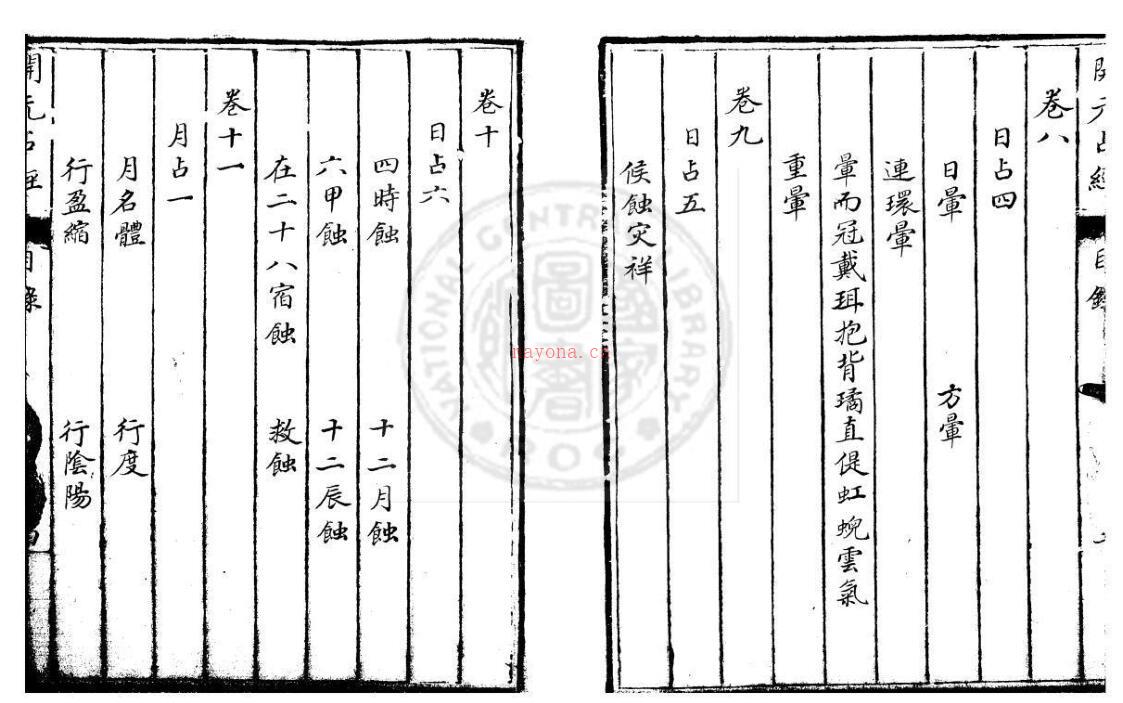 開元占經 目錄
卷八
日占四
日暈 方暈
連環暈
暈而冠戴珥抱背璚直偍虹蜺雲氣
重暈
卷九
日占五
候蝕灾祥
卷十
日占六
四時蝕 十二月蝕
六甲蝕 十二辰蝕
在二十八宿蝕 救蝕
卷十一
月占一
月名體 行度
行盈縮 行陰陽
開元占經 目錄
NATIONAL CENTRAL LIBRARY
ROC
nayona.cn